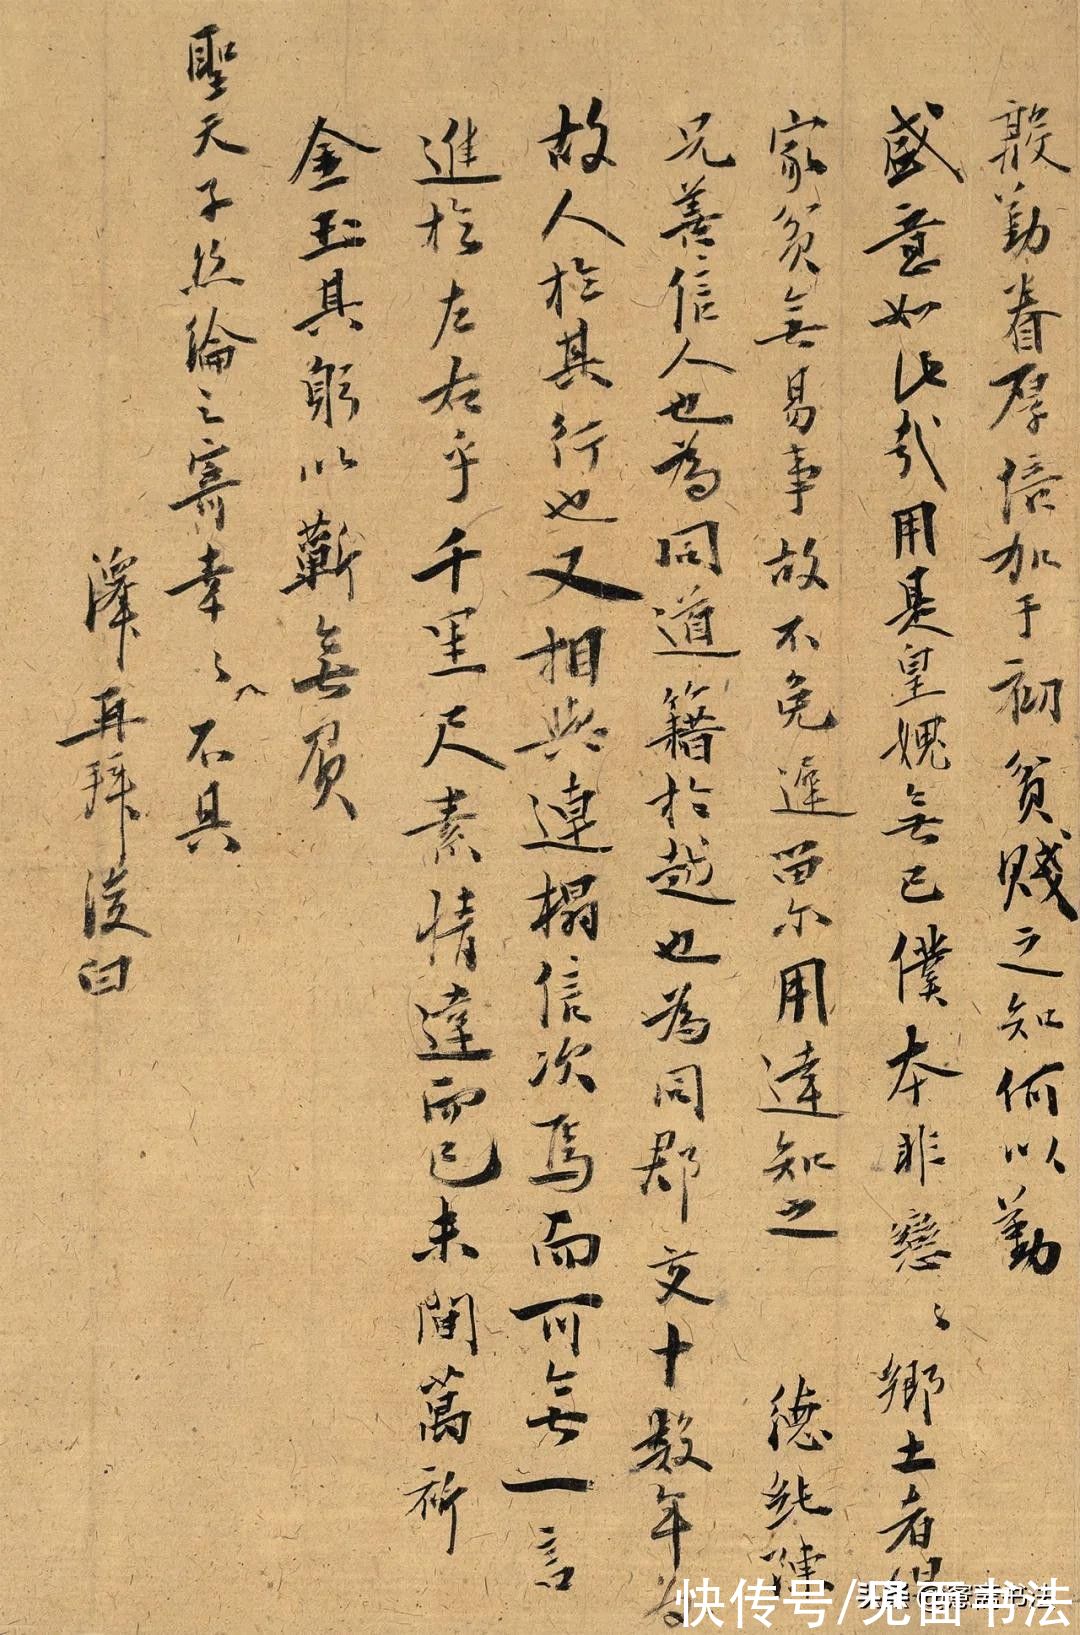 殷勤眷厚倍加于初貧賤之知何以勤
盛意如此哉用是皇媿無已僕本非戀〻鄉土者但
家貧無易事故不免遲留尔用達知之 德然陳
兄善信人也為同道籍於越也為同郡交十數年為
故人於其行也又相與連榻信次焉而可無一言
進於左右乎千里尺素情達而已未間萬祈
金玉其躬以蘄無負
聖天子絲綸之寄幸〻不具
澤再拜復曰
快传号/见面书法